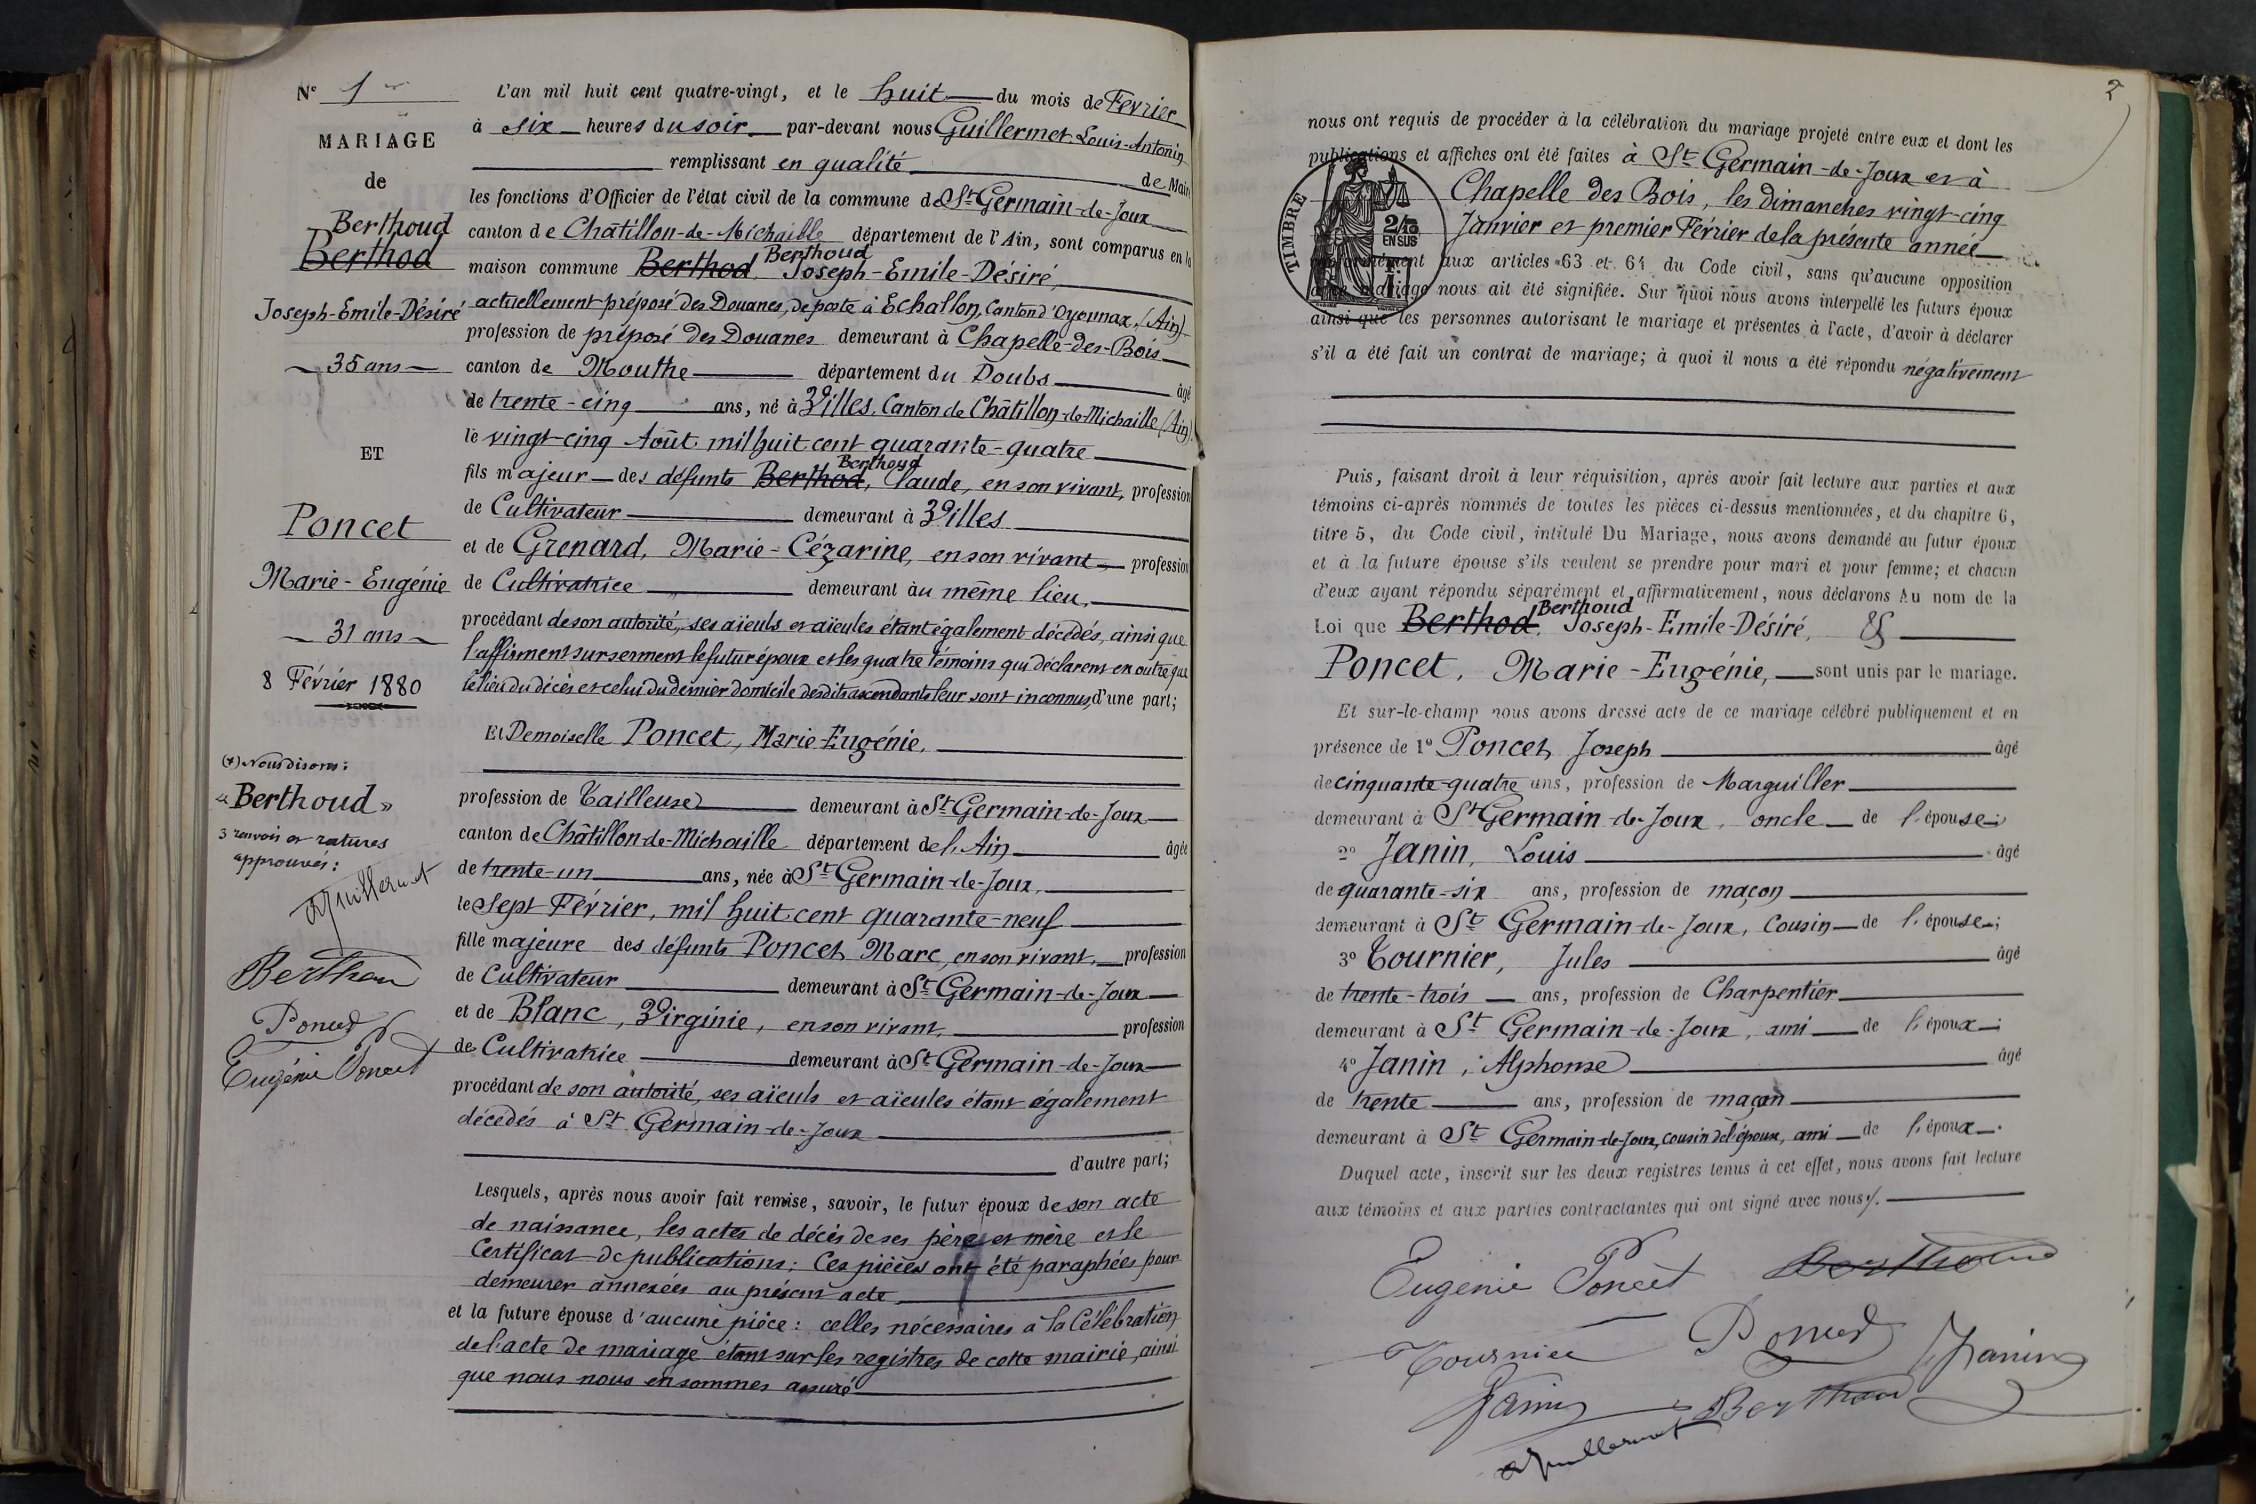 N° 1
MARIAGE
de
Berthoud
Berthod
Joseph-Emile-Désiré
35 ans
ET
Poncet
Marie-Eugénie
31 ans
8 Février 1880
(*) Nous disons :
« Berthoud »
3 renvois et ratures
approuvés :
aGuillermet
Berthoud
Poncet
Eugénie Poncet
L'an mil huit cent quatre-vingt, et le huit du mois de Février
à six heures du soir par-devant nous Guillermet Louis-Antonin
remplissant en qualité de Maire
les fonctions d'Officier de l'état civil de la commune de St Germain-de-Joux
canton de Châtillon-de-Michaille département de l'Ain, sont comparus en la
maison commune Berthod, Berthoud Joseph-Emile-Désiré,
actuellement préposé des Douanes, de poste à Echallon, Canton d'Oyonnax, (Ain)
profession de préposé des Douanes demeurant à Chapelle-des-Bois
canton de Mouthe département du Doubs âgé
de trente-cinq ans, né à Villes, Canton de Châtillon-de-Michaille (Ain)
le vingt-cinq Août mil huit cent quarante-quatre
fils majeur des défunts Berthod, Berthoud Claude, en son vivant, profession
de Cultivateur demeurant à Villes
et de Grenard, Marie-Cézarine, en son vivant profession
de Cultivatrice demeurant au même lieu,
procédant de son autorité, ses aïeuls et aïeules étant également décédés, ainsi que
l'affirment sur serment le futur époux et les quatre témoins qui déclarent en outre que
le lieu du décès et celui du dernier domicile desdits ascendants leur sont inconnus, d'une part;
Et Demoiselle Poncet, Marie-Eugénie,
profession de Tailleuse demeurant à St Germain-de-Joux
canton de Châtillon-de-Michaille département de l'Ain âgée
de trente-un ans, née à St Germain-de-Joux,
le Sept Février, mil huit cent quarante-neuf
fille majeure des défunts Poncet Marc, en son vivant, profession
de Cultivateur demeurant à St Germain-de-Joux
et de Blanc, Virginie, en son vivant, profession
de Cultivatrice demeurant à St Germain-de-Joux
procédant de son autorité, ses aïeuls et aïeules étant également
décédés à St Germain-de-Joux
d'autre part;
Lesquels, après nous avoir fait remise, savoir, le futur époux de son acte
de naissance, les actes de décès de ses père et mère et le
Certificat de publications; Ces pièces ont été paraphées pour
demeurer annexées au présent acte
et la future épouse d'aucune pièce : celles nécessaires à la Célébration
de l'acte de mariage étant sur les registres de cette mairie, ainsi
que nous nous en sommes assuré
2
nous ont requis de procéder à la célébration du mariage projeté entre eux et dont les
publications et affiches ont été faites à St Germain-de-Joux et à
Chapelle des Bois, les dimanches vingt-cinq
Janvier et premier Février de la présente année
TIMBRE
2/10
EN SUS
conformément aux articles 63 et 64 du Code civil, sans qu'aucune opposition
à ce mariage nous ait été signifiée. Sur quoi nous avons interpellé les futurs époux
ainsi que les personnes autorisant le mariage et présentes à l'acte, d'avoir à déclarer
s'il a été fait un contrat de mariage; à quoi il nous a été répondu négativement
Puis, faisant droit à leur réquisition, après avoir fait lecture aux parties et aux
témoins ci-après nommés de toutes les pièces ci-dessus mentionnées, et du chapitre 6,
titre 5, du Code civil, intitulé Du Mariage, nous avons demandé au futur époux
et à la future épouse s'ils veulent se prendre pour mari et pour femme; et chacun
d'eux ayant répondu séparément et affirmativement, nous déclarons Au nom de la
Loi que Berthod, Berthoud Joseph-Emile-Désiré, &
Poncet, Marie-Eugénie, sont unis par le mariage.
Et sur-le-champ nous avons dressé acte de ce mariage célébré publiquement et en
présence de 1° Poncet Joseph âgé
de cinquante-quatre ans, profession de Marguiller
demeurant à St Germain-de-Joux, oncle de l'épouse;
2° Janin, Louis âgé
de quarante-six ans, profession de maçon
demeurant à St Germain-de-Joux, Cousin de l'épouse;
3° Tournier, Jules âgé
de trente-trois ans, profession de Charpentier
demeurant à St Germain-de-Joux, ami de l'époux;
4° Janin, Alphonse âgé
de trente ans, profession de maçon
demeurant à St Germain-de-Joux, cousin de l'époux, ami de l'époux.
Duquel acte, inscrit sur les deux registres tenus à cet effet, nous avons fait lecture
aux témoins et aux parties contractantes qui ont signé avec nous.
Eugénie Poncet Berthoud
Tournier Poncet Janin
Janin Berthoud
aGuillermet